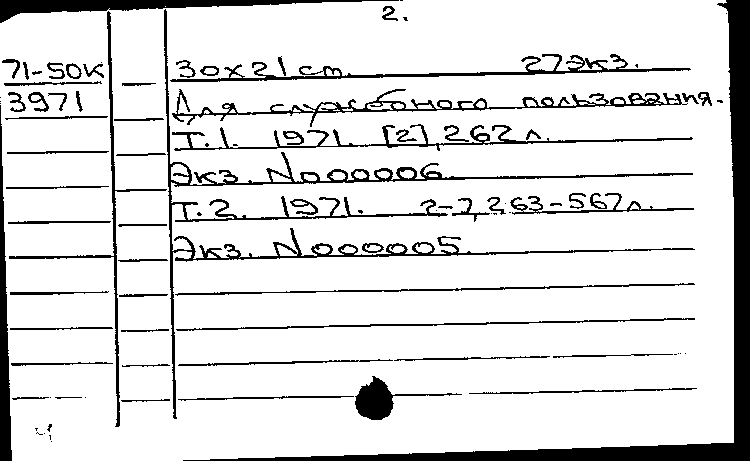 2.
71-50К 30х21 см. 27 экз.
3971 Для служебного пользования.
Т.1. 1971. [2], 262 л.
Экз. N000006.
Т.2. 1971. 263-567 л.
Экз. N000005.